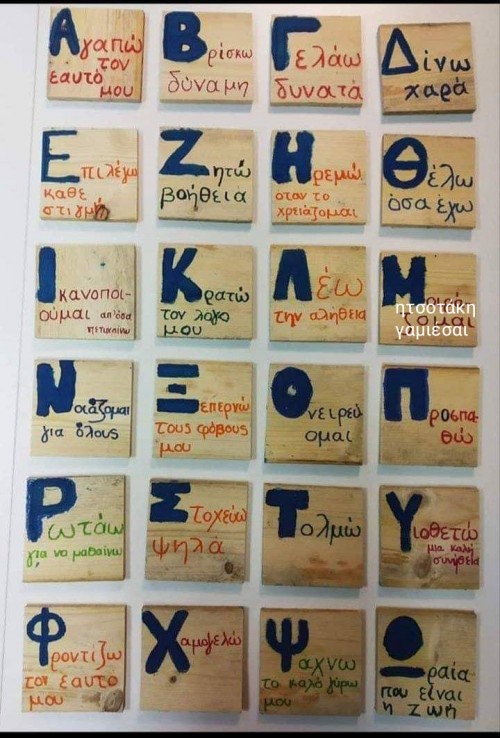 Αγαπώ
τον
εαυτό
μου
Βρίσκω
δύναμη
Γελάω
δυνατά
Δίνω
χαρά
Επιλέγω
καθε
στιγμή
Ζητώ
βοήθεια
Ηρεμώ
οταν το
χρειάζομαι
Θέλω
όσα έχω
Ικανοποι-
ούμαι απ'όσα
πετυχαίνω
Κρατώ
τον λόγο
μου
Λέω
την αλήθεια
Μ
ητσοτάκη
γαμιέσαι
Νοιάζομαι
για όλους
Ξεπερνώ
τους φόβους
μου
Ονειρεύ
ομαι
Προσπα-
θώ
Ρωτάω
για να μαθαίνω
Στοχεύω
ψηλά
Τολμώ
Υιοθετώ
μια καλή
συνήθεια
Φροντίζω
τον εαυτο
μου
Χαμογελώ
Ψαχνω
το καλό γύρω
μου
Ωραία
που είναι
η Ζωή